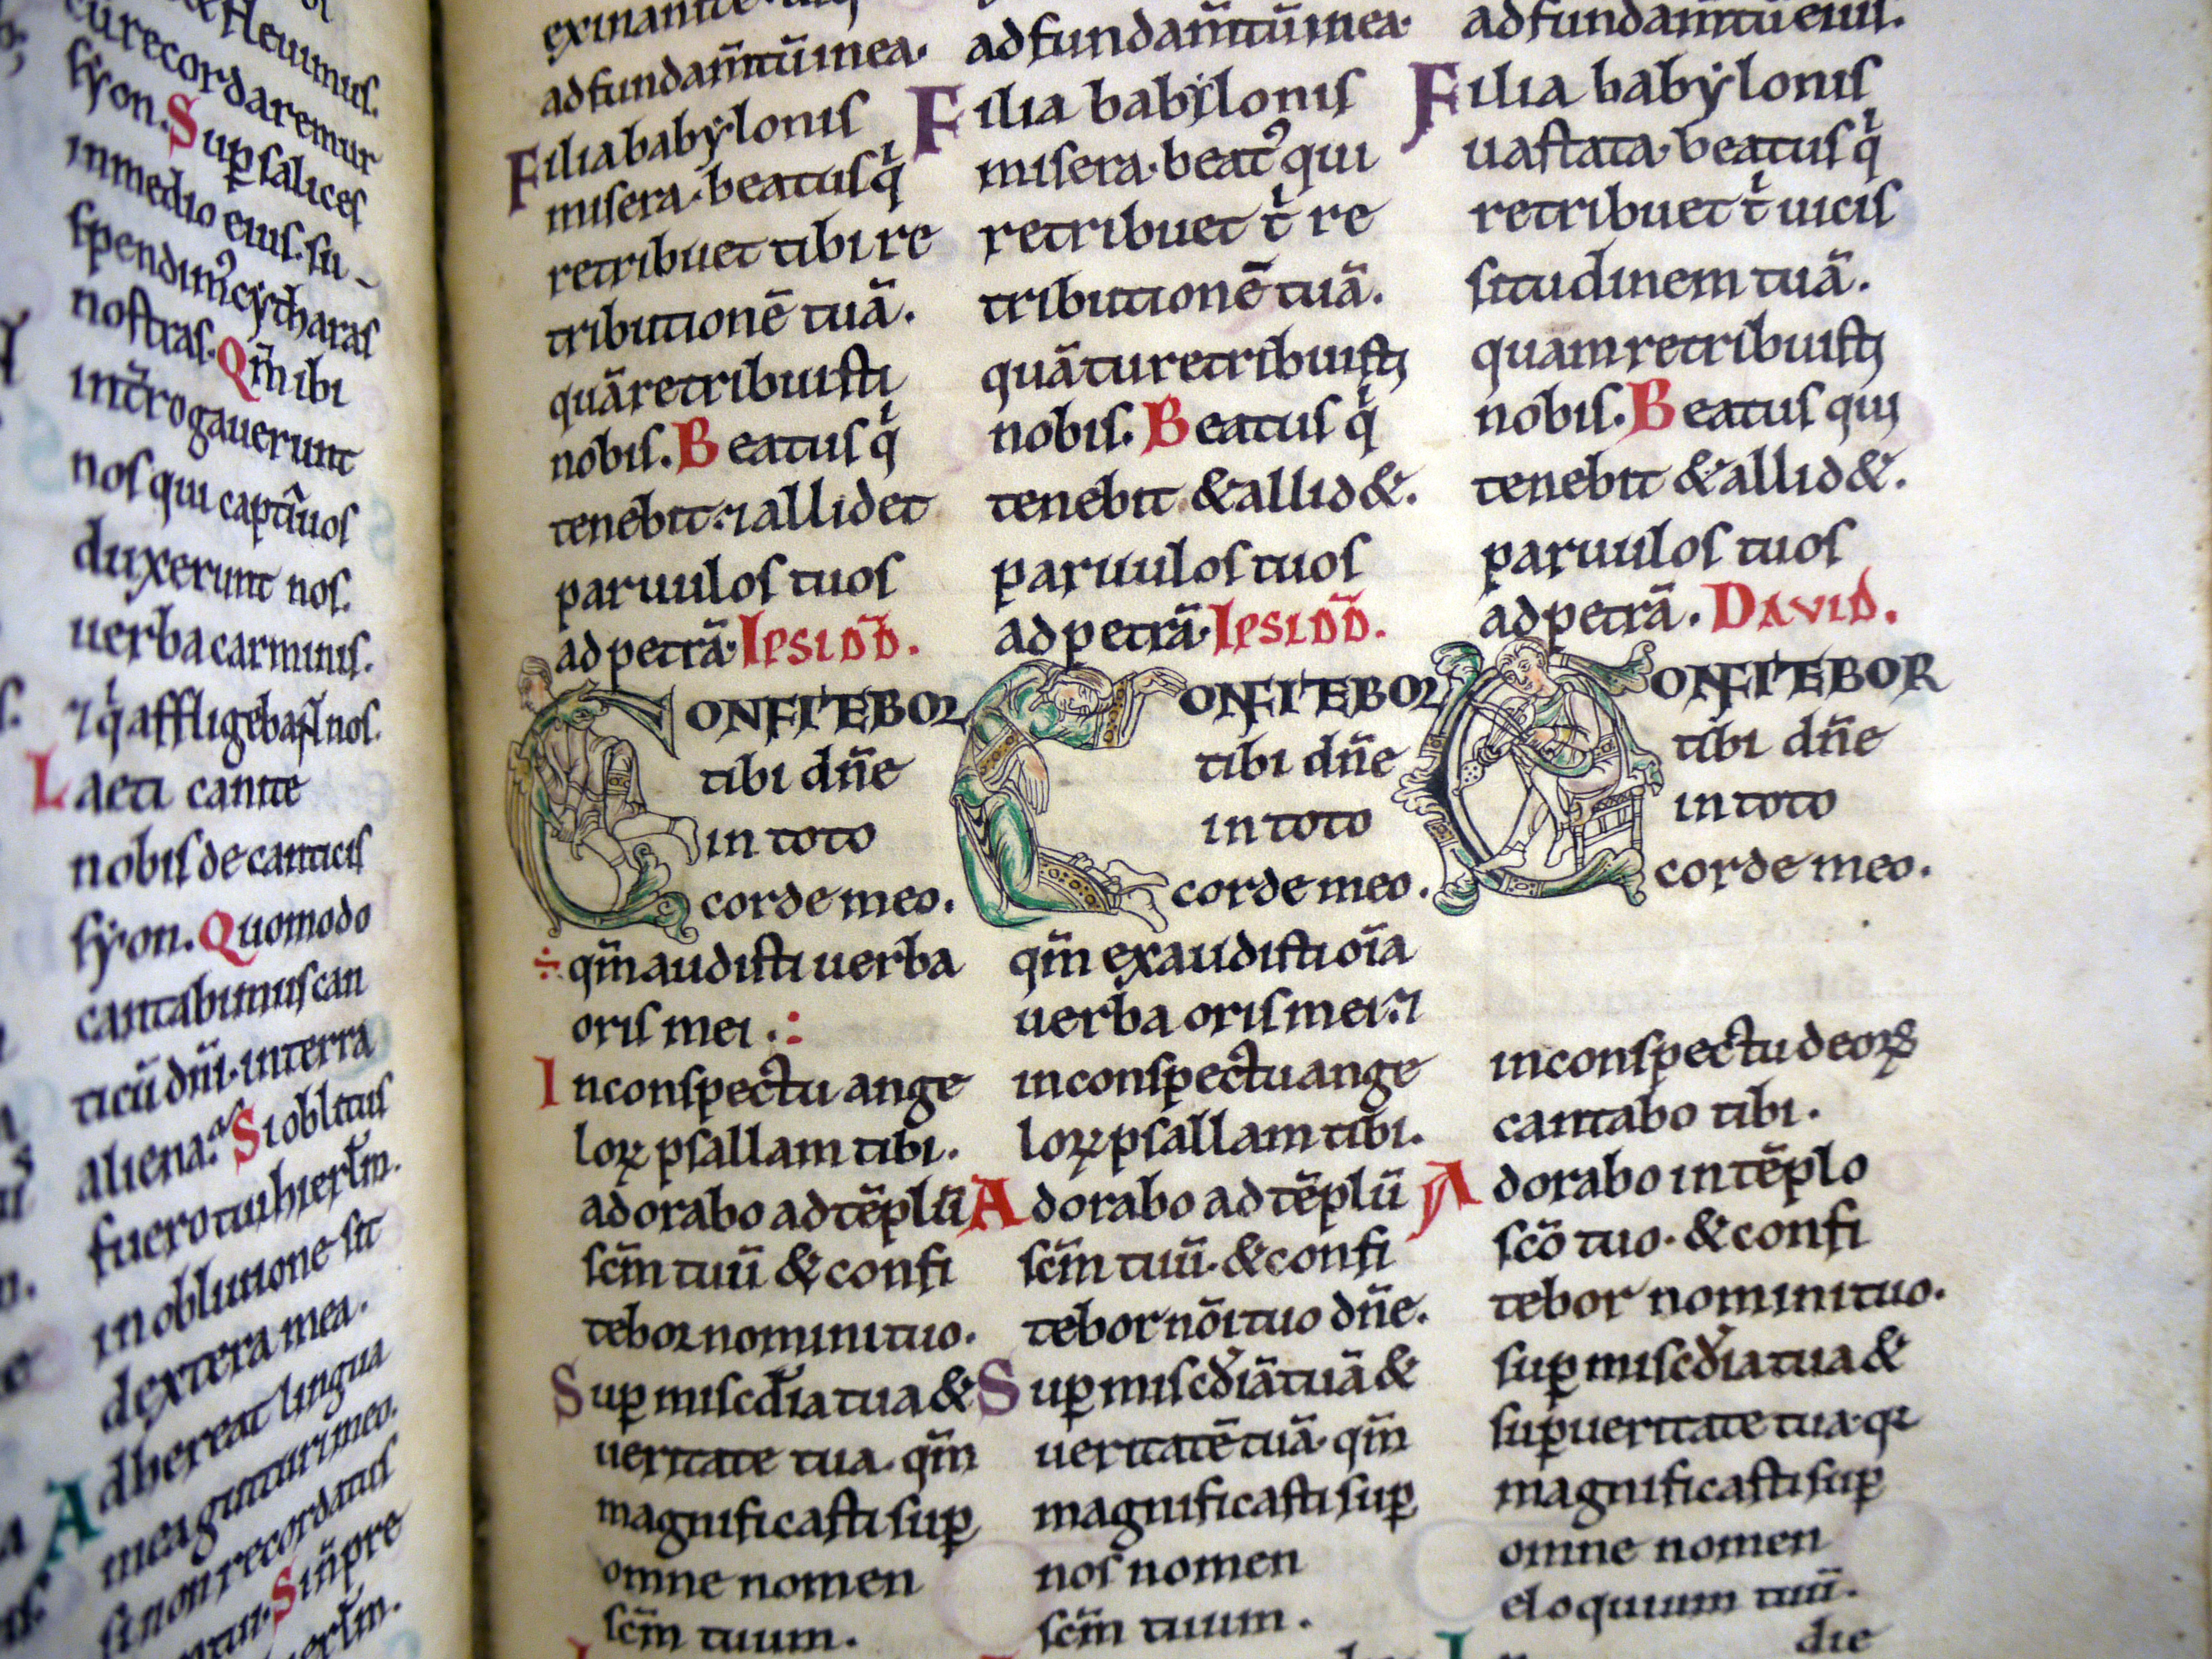 & fleuimus.
recordaremur
syon. Sup salices
in medio eius. su-
spendim᷒ cytharas
nostras. Qm̄ ibi
int̄rogauerunt
nos qui captiuos
duxerunt nos.
uerba carminis.
⁊ q̇ affligebant nos.
Laeti canite
nobis de canticis
syon. Quomodo
cantabimus can
ticū dn̄i. in terra
aliena. Si oblitus
fuero tui hierl̄m.
in obliuione sit
dextera mea.
Adhereat lingua
mea gutturi meo.
si non recordatus
Si n̄ pre
ad fundam̄tū in ea.
Filia babylonis
misera. beatus q̇
retribuet tibi re
tributionē tuā.
quā retribuisti
nobis. Beatus q̇
tenebit: ⁊ allidet
paruulos tuos
ad petrā. IPSI DD̄.
CONFITEBOR
tibi dn̄e
in toto
corde meo.
÷ qm̄ audisti uerba
oris mei . :
In conspectu ange
loꝝ psallam tibi.
adorabo ad tēplū
sc̄m tuū & confi
tebor nomini tuo.
Suꝑ misc̄dia tua &
ueritate tua. qm̄
magnificasti suꝑ
omne nomen
sc̄m tuum.
ad fundam̄tū in ea.
Filia babylonis
misera. beat᷒ qui
retribuet t̍ re
tributionē tuā.
quā tu retribuisti
nobis. Beatus q̇
tenebit & allid&.
paruulos tuos
ad petrā. IPSI DD̄.
CONFITEBOR
tibi dn̄e
in toto
corde meo.
qm̄ exaudisti oīa
uerba oris mei: ⁊
in conspectu ange
loꝝ psallam tibi.
Adorabo ad tēplū
sc̄m tuū. & confi
tebor nōi tuo dn̄e.
Suꝑ misc̄diā tuā &
ueritatē tuā. qm̄
magnificasti suꝑ
nos nomen
sc̄m tuum.
ad fundam̄tū eius.
Filia babylonis
uastata. beatus q̇
retribuet t̍ uicis
situdinem tuā.
quam retribuisti
nobis. Beatus qui
tenebit & allid&.
paruulos tuos
ad petrā. DAVID.
CONFITEBOR
tibi dn̄e
in toto
corde meo.
in conspectu deoꝝ
cantabo tibi.
Adorabo in tēplo
sc̄o tuo. & confi
tebor nomini tuo.
suꝑ misc̄dia tua &
suꝑ ueritate tua. qꝛ
magnificasti suꝑ
omne nomen
eloquium tuū.
die